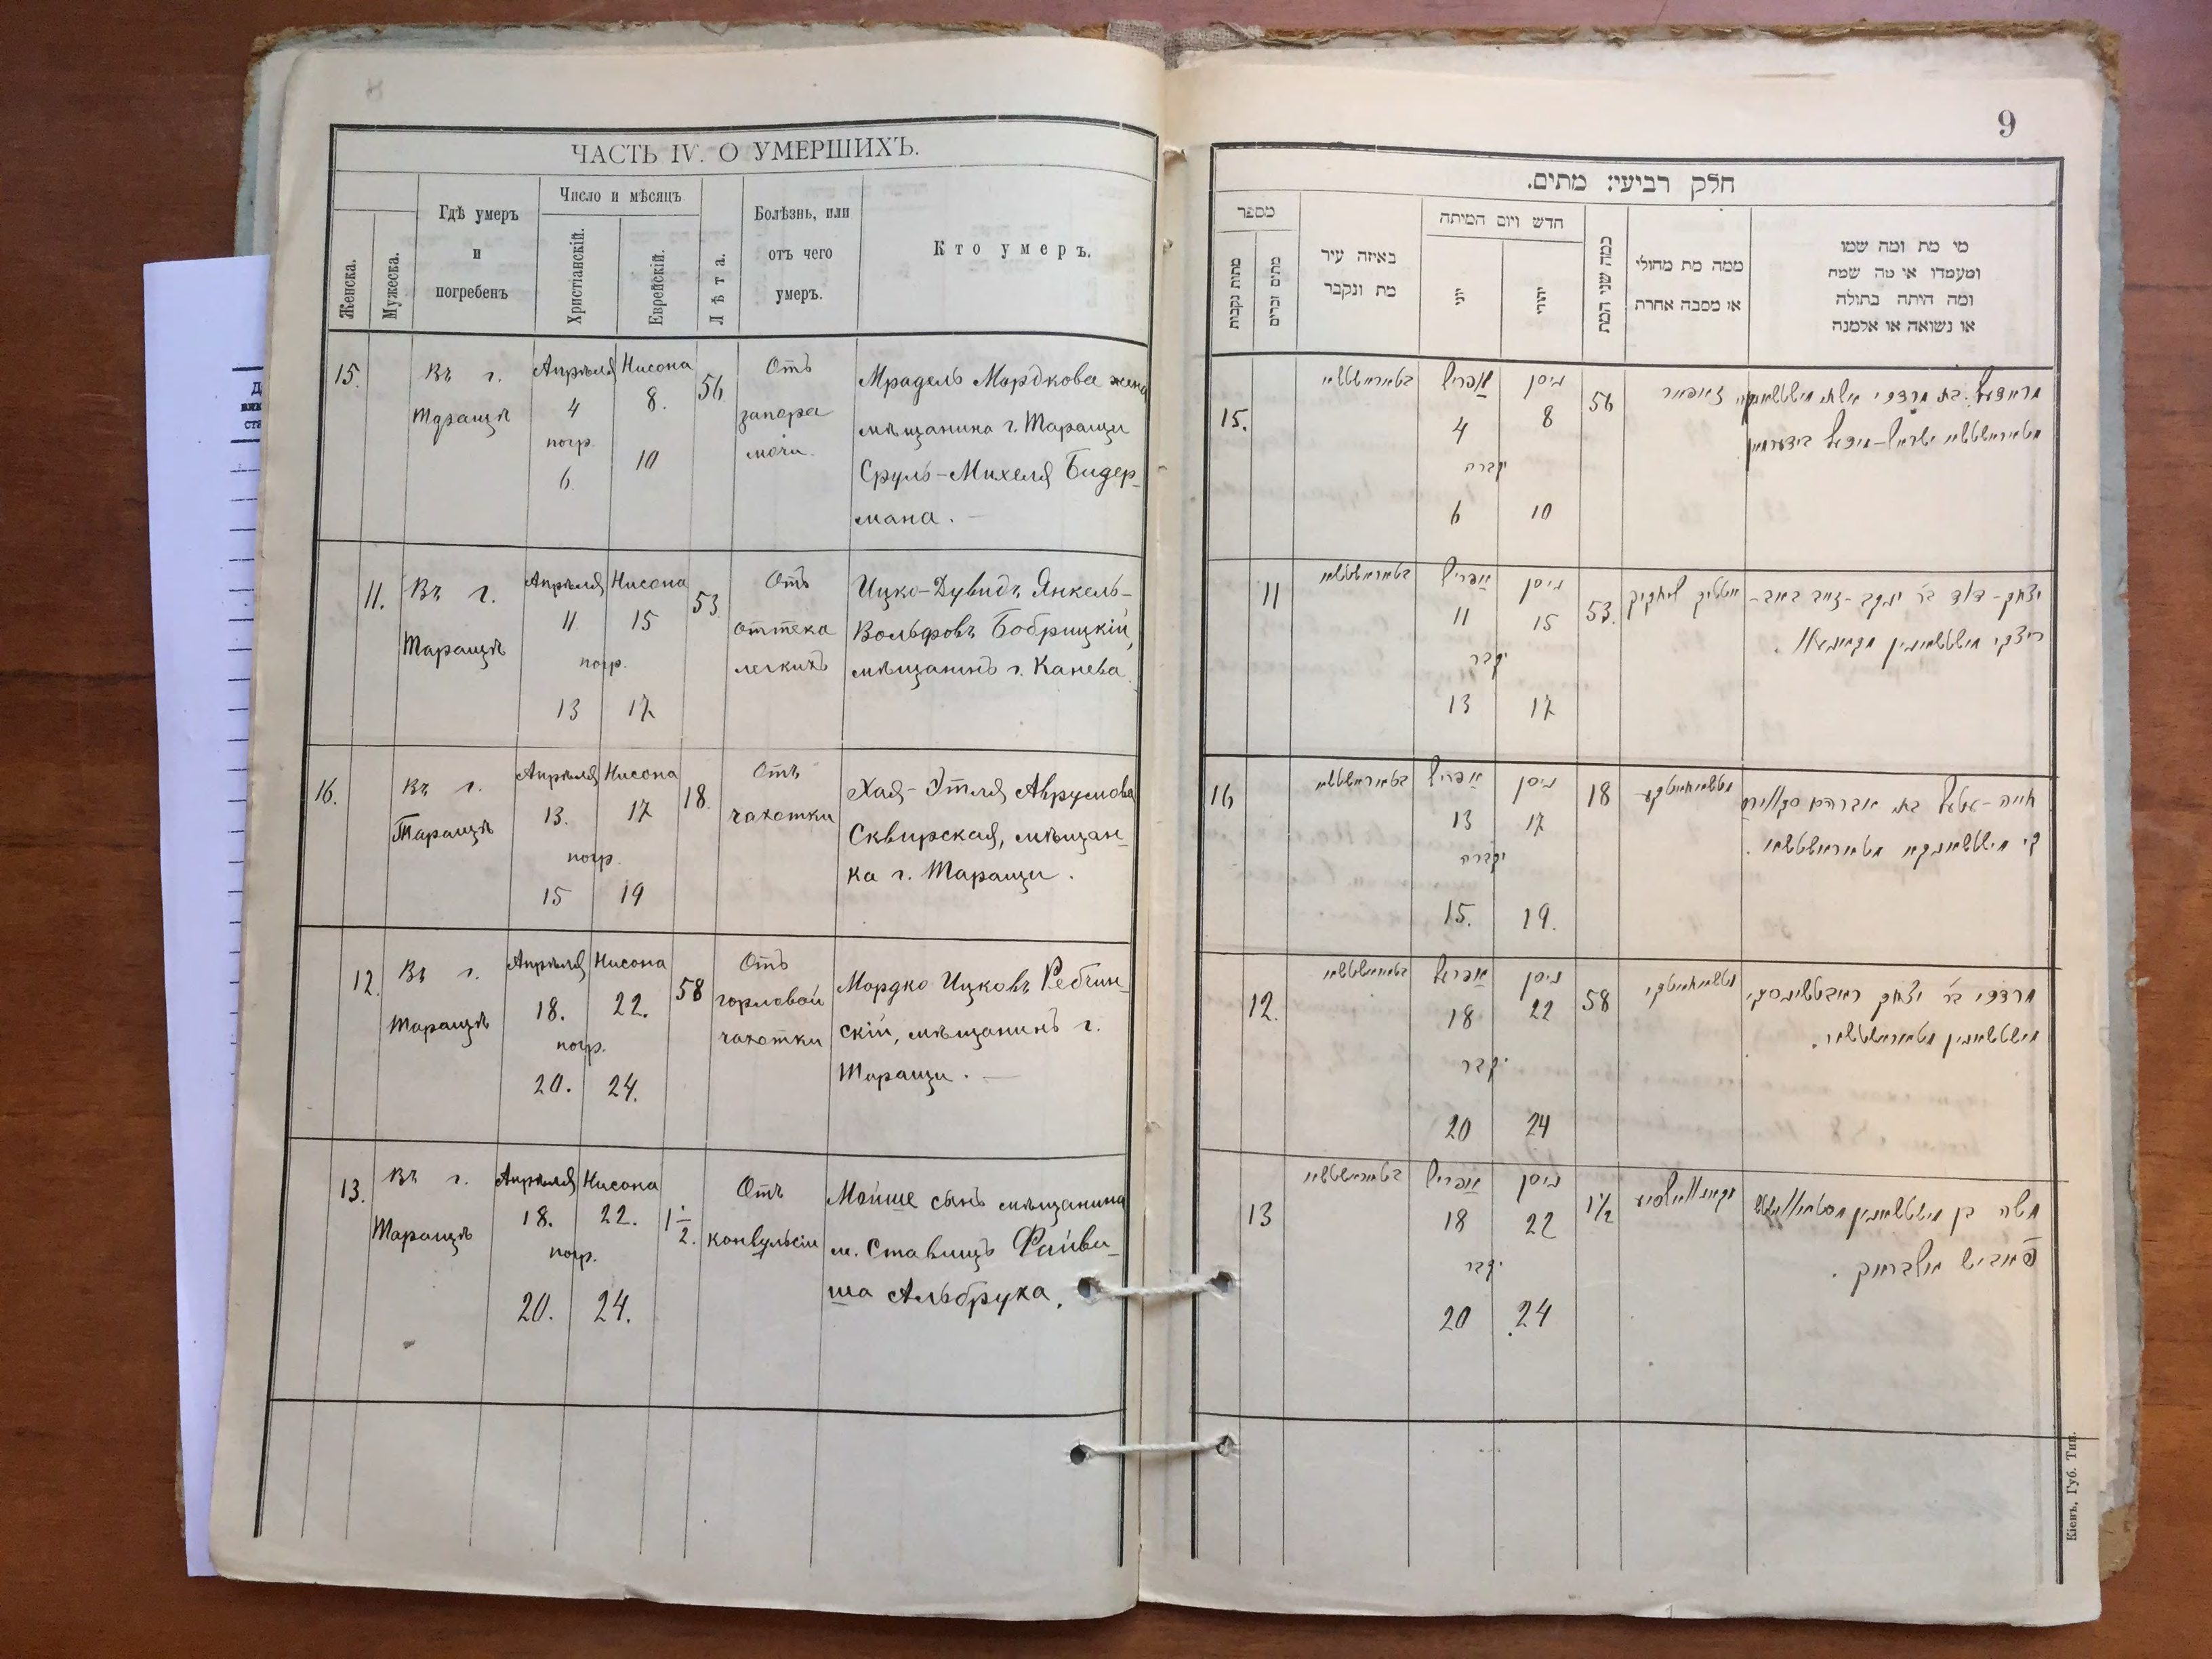 ЧАСТЬ IV. О УМЕРШИХЪ.
Женска.
Мужеска.
Гдѣ умеръ
и
погребенъ
Число и мѣсяцъ
Христіанскій.
Еврейскій.
Лѣта.
Болѣзнь, или
отъ чего
умеръ.
Кто умеръ.
15.
Въ г.
Таращѣ
Апрѣля
4
погр.
6.
Нисона
8.
10
56
Отъ
запора
мочи.
Мрадель Мордкова жена
мѣщанина г. Таращи
Сруль-Михеля Бидер-
мана. -
11.
Въ г.
Таращѣ
Апрѣля
11
погр.
13
Нисона
15
17
53
Отъ
оттека
легкихъ
Ицко-Дувидъ Янкель-
Вольфовъ Бобрицкій,
мѣщанинъ г. Канева.
16.
Въ г.
Таращѣ
Апрѣля
13.
погр.
15
Нисона
17
19
18.
Отъ
чахотки
Хая-Этля Аврумова
Сквирская, мѣщан-
ка г. Таращи.
12.
Въ г.
Таращѣ
Апрѣля
18.
погр.
20.
Нисона
22.
24.
58
Отъ
горловой
чахотки
Мордко Ицковъ Ребчин-
скій, мѣщанинъ г.
Таращи. -
13.
Въ г.
Таращѣ
Апрѣля
18.
погр.
20.
Нисона
22.
24.
1 1/2.
Отъ
конвульсіи
Мойше сынъ мѣщанина
м. Ставищъ Файви-
ша Альбруха.
9
חלק רביעי: מתים.
מספר
מתות נקבות
מתים זכרים
באיזה עיר
מת ונקבר
חדש ויום המיתה
יוני
יהודי
כמה שני המת
ממה מת מחולי
או מסבה אחרת
מי מת ומה שמו
ומעמדו או מה שמה
ומה היתה בתולה
או נשואה או אלמנה
15.
בטאראשטשא
אפריל
4
נקברה
6
ניסן
8
10
56
מראדעל בת מרדכי אשת
ישראל-מיכל בידערמאן
11
בטאראשטשא
אפריל
11
נקבר
13
ניסן
15
17
53.
יצחק-דוד בר יעקב-זאב באב-
ריצקי מישטשאנין מקאניוו.
16
בטאראשטשא
אפריל
13
נקברה
15.
ניסן
17
19.
18
חייה-עטעל בת אברהם סקווירס
קי מישטשאנקא מטאראשטשא.
12.
בטאראשטשא
אפריל
18
נקבר
20
ניסן
22
24
58
מרדכי בר יצחק
מישטשאנין מטאראשטשא.
13
בטאראשטשא
אפריל
18
נקבר
20
ניסן
22
24
1 1/2
משה בן מישטשאנין
פאביש אלברוק.
Кіевъ, Губ. Тип.